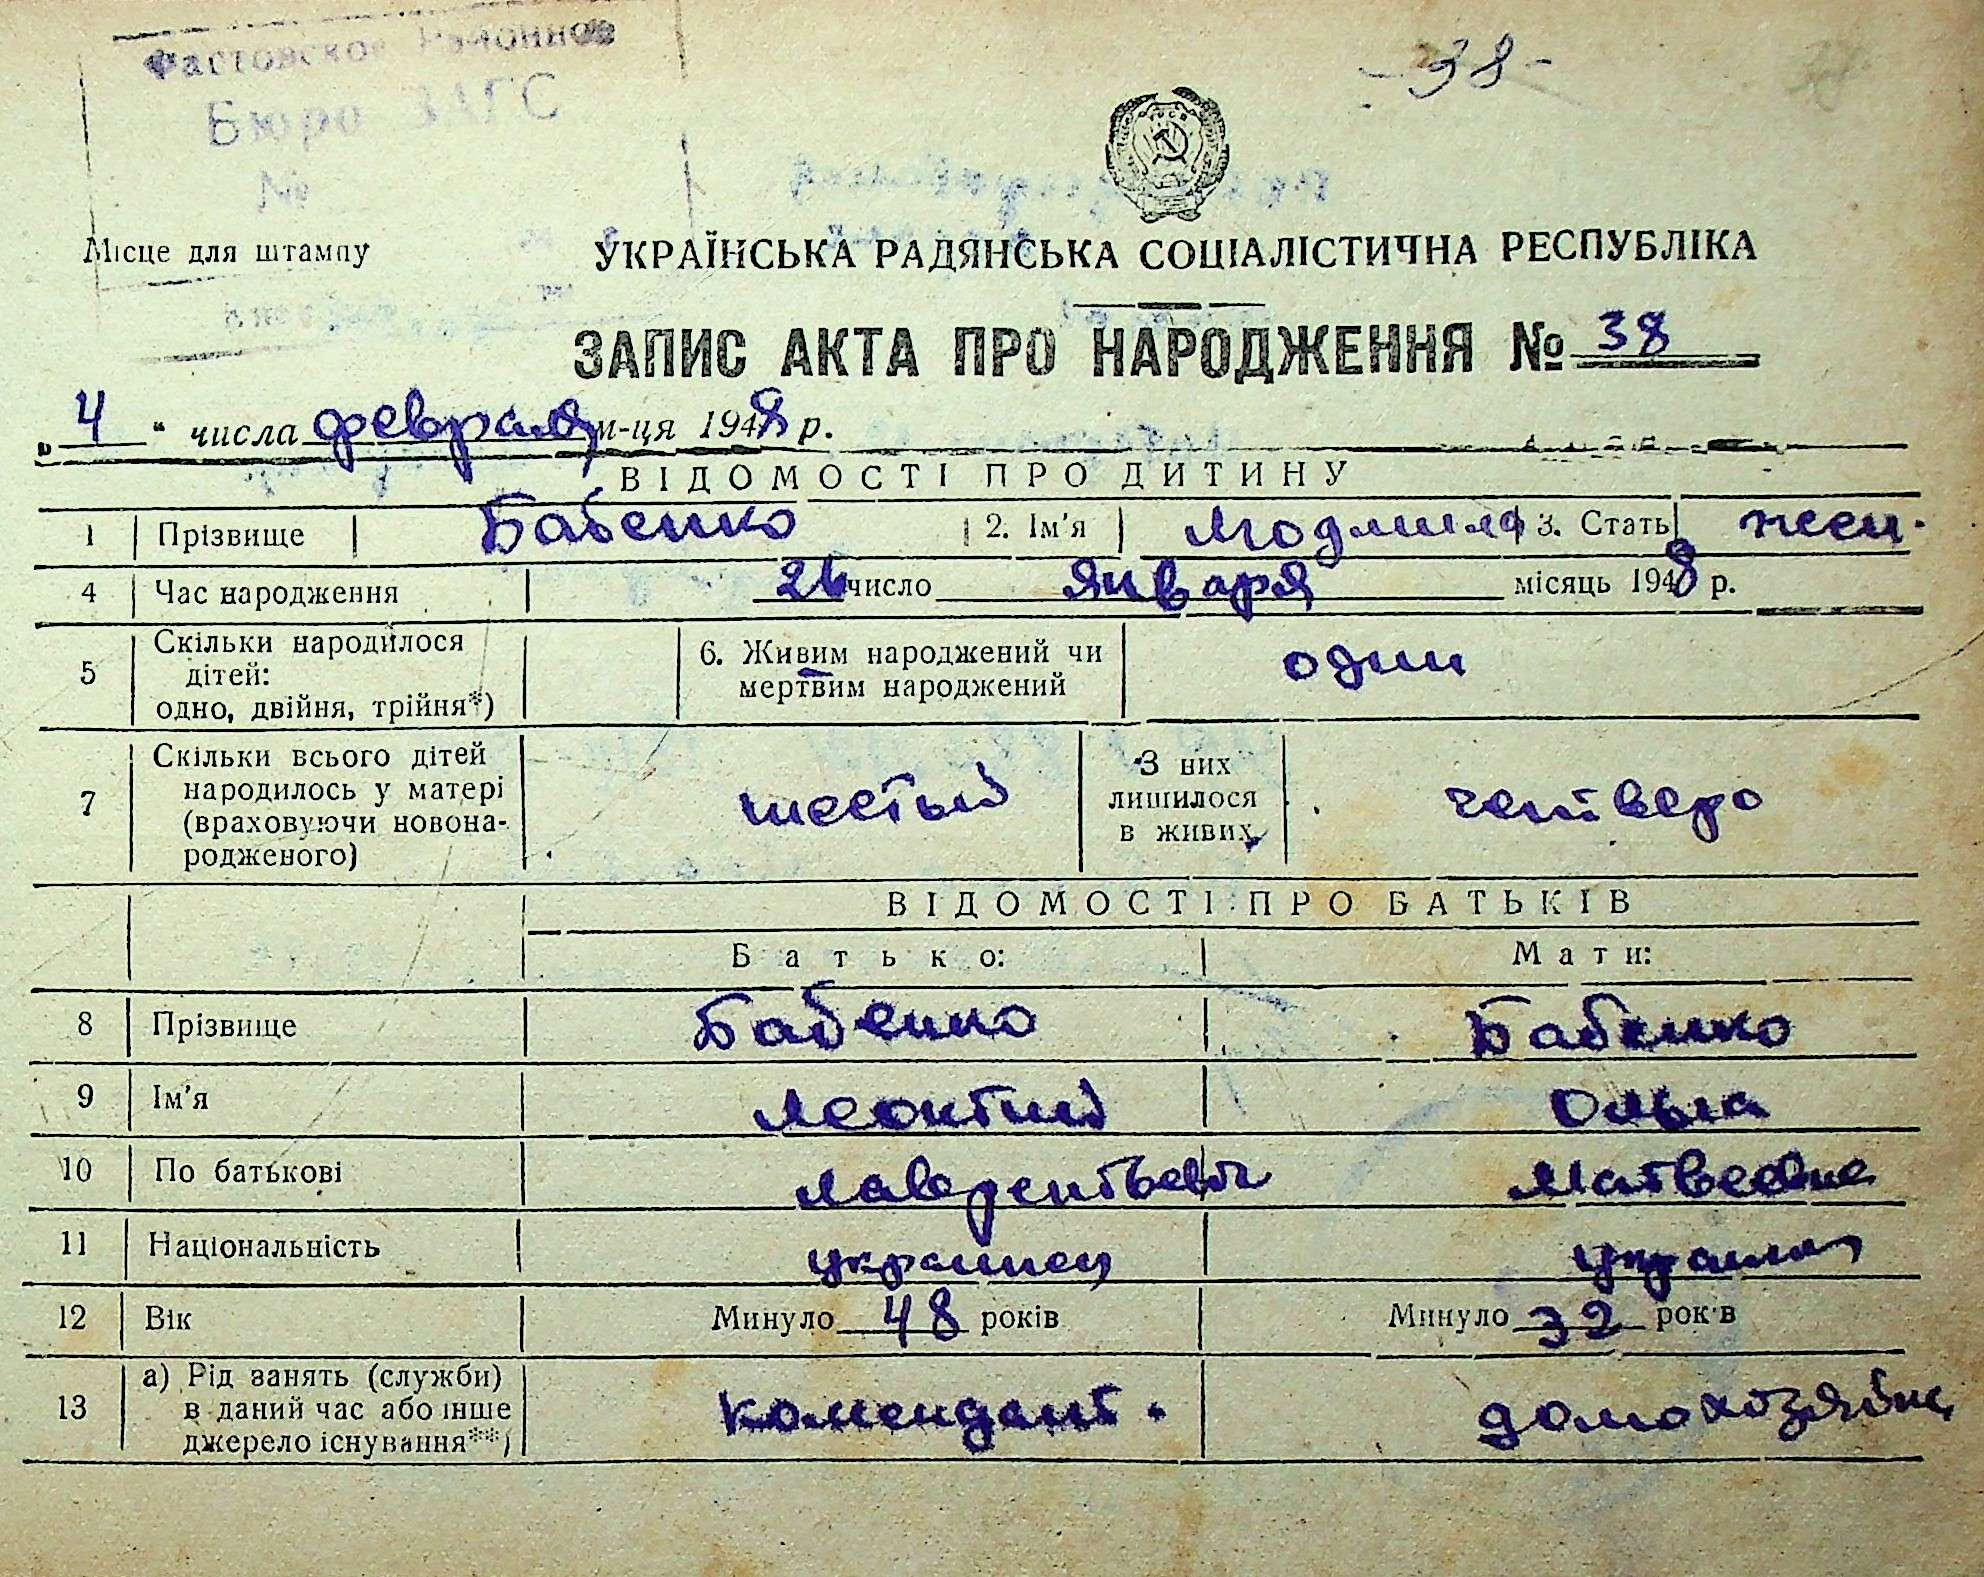 Фастовское Районное
Бюро ЗАГС
№
- 38 -
Місце для штампу
УКРАЇНСЬКА РАДЯНСЬКА СОЦІАЛІСТИЧНА РЕСПУБЛІКА
ЗАПИС АКТА ПРО НАРОДЖЕННЯ № 38
„ 4 “ числа февраля м-ця 1948 р.
ВІДОМОСТІ ПРО ДИТИНУ
1 Прізвище Бабенко 2. Ім'я Людмила 3. Стать жен.
4 Час народження 26 число января місяць 1948 р.
5 Скільки народилося
дітей:
одно, двійня, трійня*)
6. Живим народжений чи
мертвим народжений
один
7 Скільки всього дітей
народилось у матері
(враховуючи новона-
родженого)
шестый
З них
лишилося
в живих
четверо
ВІДОМОСТІ ПРО БАТЬКІВ
Батько: Мати:
8 Прізвище Бабенко Бабенко
9 Ім'я Леонтий Ольга
10 По батькові Лаврентьевич Матвеевна
11 Національність украинец
12 Вік Минуло 48 років Минуло 32 років
13 а) Рід занять (служби)
в даний час або інше
джерело існування**)
комендант. домохозяйка